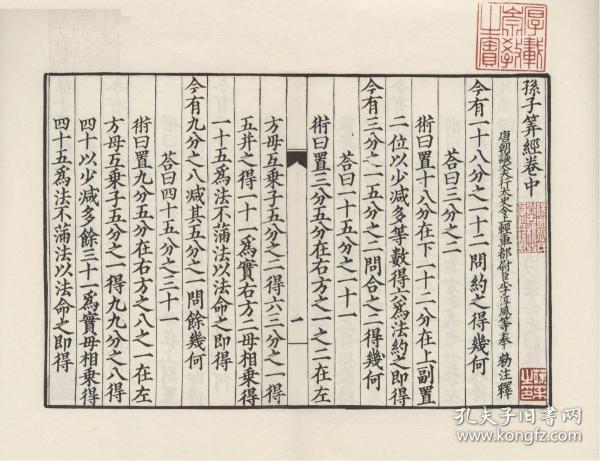 孫子筭經卷中
唐朝議大夫行太史令上輕車都尉臣李淳風等奉 勑注釋
今有一十八分之一十二問約之得幾何
荅曰三分之二
術曰置十八分在下一十二分在上副置
二位以少減多等數得六爲法約之即得
今有三分之一五分之二問合之二得幾何
荅曰一十五分之一十一
術曰置三分五分在右方之一之二在左
方母互乘子五分之二得六三分之一得
五并之得一十一爲實右方二母相乘得
一十五爲法不蒲法以法命之即得
今有九分之八減其五分之一問餘幾何
荅曰四十五分之三十一
術曰置九分五分在右方之八之一在左
方母互乘子五分之一得九九分之八得
四十以少減多餘三十一爲實母相乘得
四十五爲法不蒲法以法命之即得
一
孔夫子旧书网
www.kongfz.com